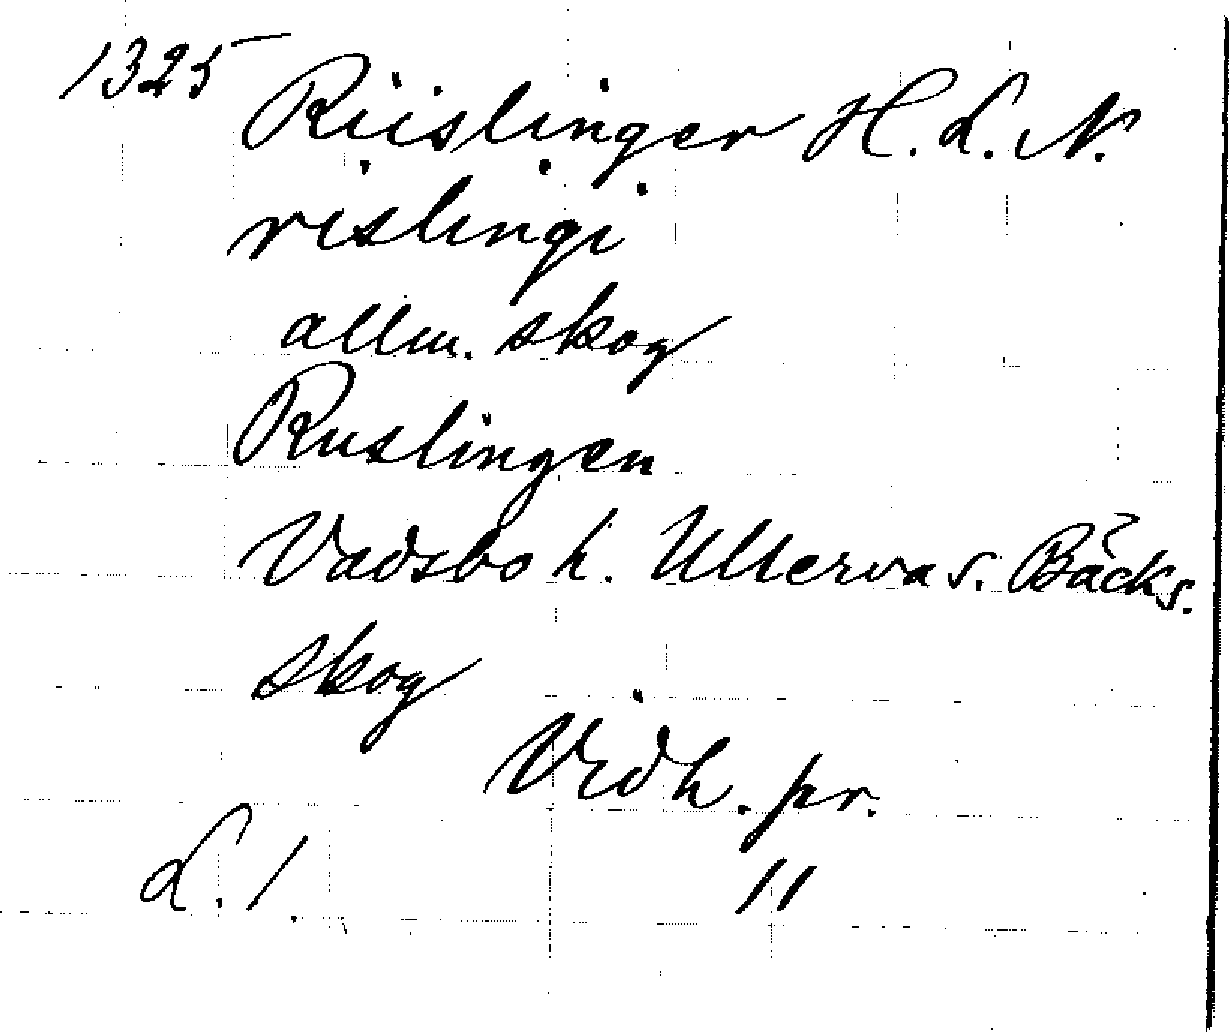 1325
Riislinger H. L. N.
rislingi
allm. skog
Ruslingen
Vadsbo h. Ullerva s. Bäcks.
skog
Vidh. pr.
L. 1. 11